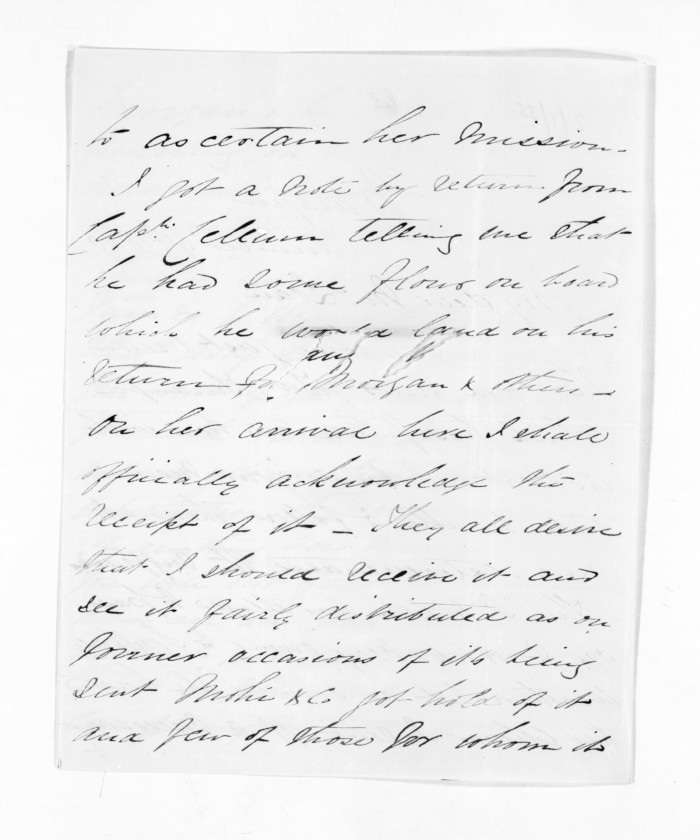 to ascertain her mission -
I got a note by return from
Captn. Cellum telling me that
he had some flour on board
which he would land on his
any
return for Morgan & others -
On her arrival here I shall
officially acknowledge the
receipt of it - They all desire
that I should receive it and
see it fairly distributed as on
former occasions of its being
sent Mohi & Co got hold of it
and few of those for whom it